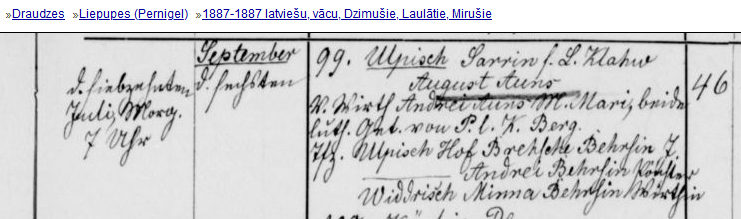 »Draudzes »Liepupes (Pernigel) »1887-1887 latviešu, vācu, Dzimušie, Laulātie, Mirušie
September
d. siebzehnten
Juli, Morg.
7 Uhr
d. sechsten
99. Ulpisch Sarrin f. L. Klahw
August Auns
V. Wirth Andrei Auns M. Mari, beide
luth. Get. von P. l. K. Berg.
Tfz. Ulpisch Hof Brehsche Behrsin J.
Andrei Behrsin Pächter
Widdrisch Minna Behrsin Wirthin
46